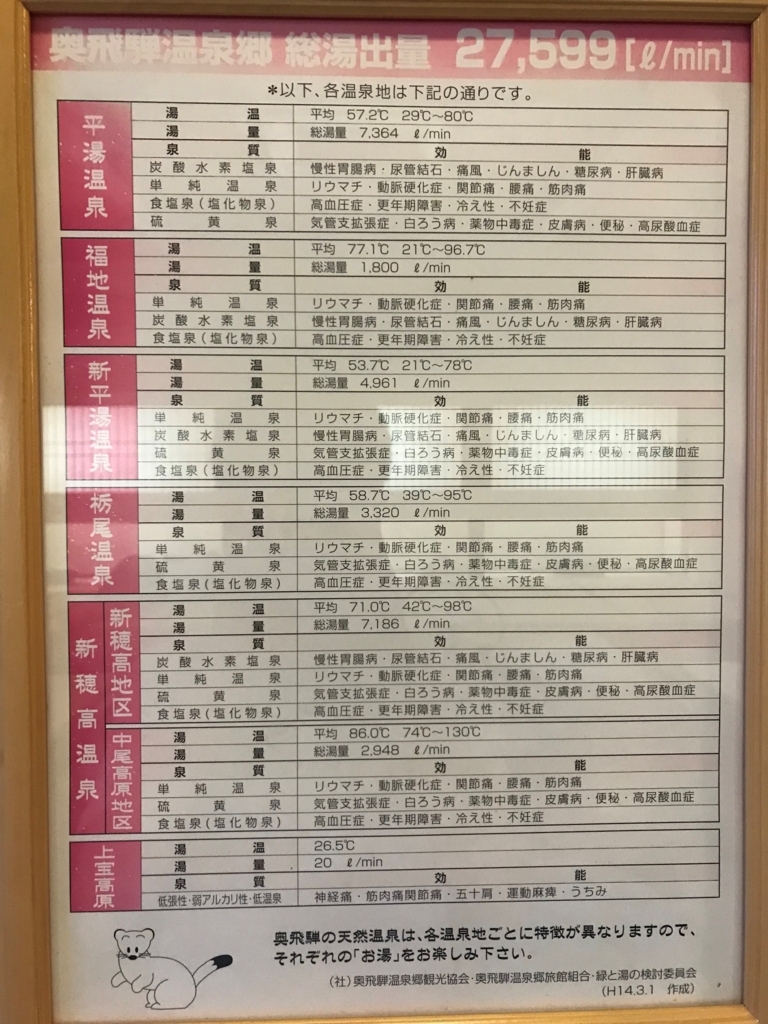 奥飛騨温泉郷 総湯出量 27,599[ℓ/min]
＊以下、各温泉地は下記の通りです。
平湯温泉
湯温 平均 57.2℃ 29℃～80℃
湯量 総湯量 7,364 ℓ/min
泉質 効能
炭酸水素塩泉 慢性胃腸病・尿管結石・痛風・じんましん・糖尿病・肝臓病
単純温泉 リウマチ・動脈硬化症・関節痛・腰痛・筋肉痛
食塩泉(塩化物泉) 高血圧症・更年期障害・冷え性・不妊症
硫黄泉 気管支拡張症・白ろう病・薬物中毒症・皮膚病・便秘・高尿酸血症
福地温泉
湯温 平均 77.1℃ 21℃～96.7℃
湯量 総湯量 1,800 ℓ/min
泉質 効能
単純温泉 リウマチ・動脈硬化症・関節痛・腰痛・筋肉痛
炭酸水素塩泉 慢性胃腸病・尿管結石・痛風・じんましん・糖尿病・肝臓病
食塩泉(塩化物泉) 高血圧症・更年期障害・冷え性・不妊症
新平湯温泉
湯温 平均 53.7℃ 21℃～78℃
湯量 総湯量 4,961 ℓ/min
泉質 効能
単純温泉 リウマチ・動脈硬化症・関節痛・腰痛・筋肉痛
炭酸水素塩泉 慢性胃腸病・尿管結石・痛風・じんましん・糖尿病・肝臓病
硫黄泉 気管支拡張症・白ろう病・薬物中毒症・皮膚病・便秘・高尿酸血症
食塩泉(塩化物泉) 高血圧症・更年期障害・冷え性・不妊症
栃尾温泉
湯温 平均 58.7℃ 39℃～95℃
湯量 総湯量 3,320 ℓ/min
泉質 効能
単純温泉 リウマチ・動脈硬化症・関節痛・腰痛・筋肉痛
硫黄泉 気管支拡張症・白ろう病・薬物中毒症・皮膚病・便秘・高尿酸血症
食塩泉(塩化物泉) 高血圧症・更年期障害・冷え性・不妊症
新穂高温泉
新穂高地区
湯温 平均 71.0℃ 42℃～98℃
湯量 総湯量 7,186 ℓ/min
泉質 効能
炭酸水素塩泉 慢性胃腸病・尿管結石・痛風・じんましん・糖尿病・肝臓病
単純温泉 リウマチ・動脈硬化症・関節痛・腰痛・筋肉痛
硫黄泉 気管支拡張症・白ろう病・薬物中毒症・皮膚病・便秘・高尿酸血症
食塩泉(塩化物泉) 高血圧症・更年期障害・冷え性・不妊症
中尾高原地区
湯温 平均 86.0℃ 74℃～130℃
湯量 総湯量 2,948 ℓ/min
泉質 効能
単純温泉 リウマチ・動脈硬化症・関節痛・腰痛・筋肉痛
硫黄泉 気管支拡張症・白ろう病・薬物中毒症・皮膚病・便秘・高尿酸血症
食塩泉(塩化物泉) 高血圧症・更年期障害・冷え性・不妊症
上宝高原
湯温 26.5℃
湯量 20 ℓ/min
泉質 効能
低張性・弱アルカリ性・低温泉 神経痛・筋肉痛関節痛・五十肩・運動麻痺・うちみ
奥飛騨の天然温泉は、各温泉地ごとに特徴が異なりますので、
それぞれの「お湯」をお楽しみ下さい。
(社)奥飛騨温泉郷観光協会・奥飛騨温泉郷旅館組合・緑と湯の検討委員会
(H14.3.1 作成)